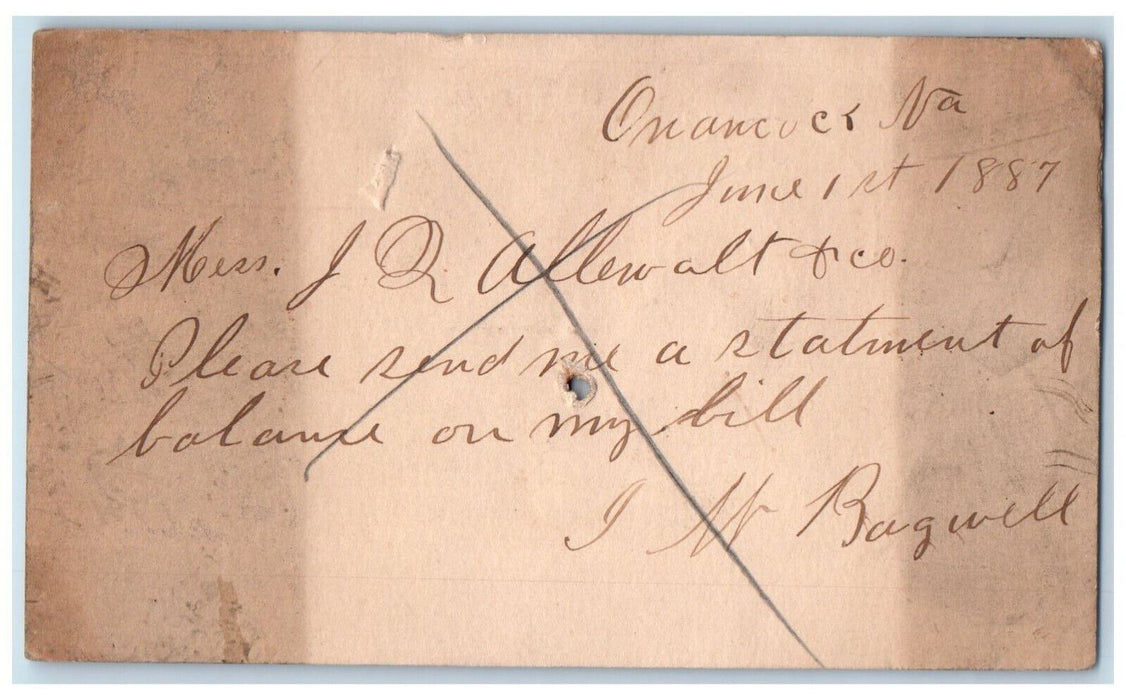 Onancock Va
June 1st 1887
Mess. J Q Allewalt & co.
Please send me a statment of
balance on my bill
J W Bagwell